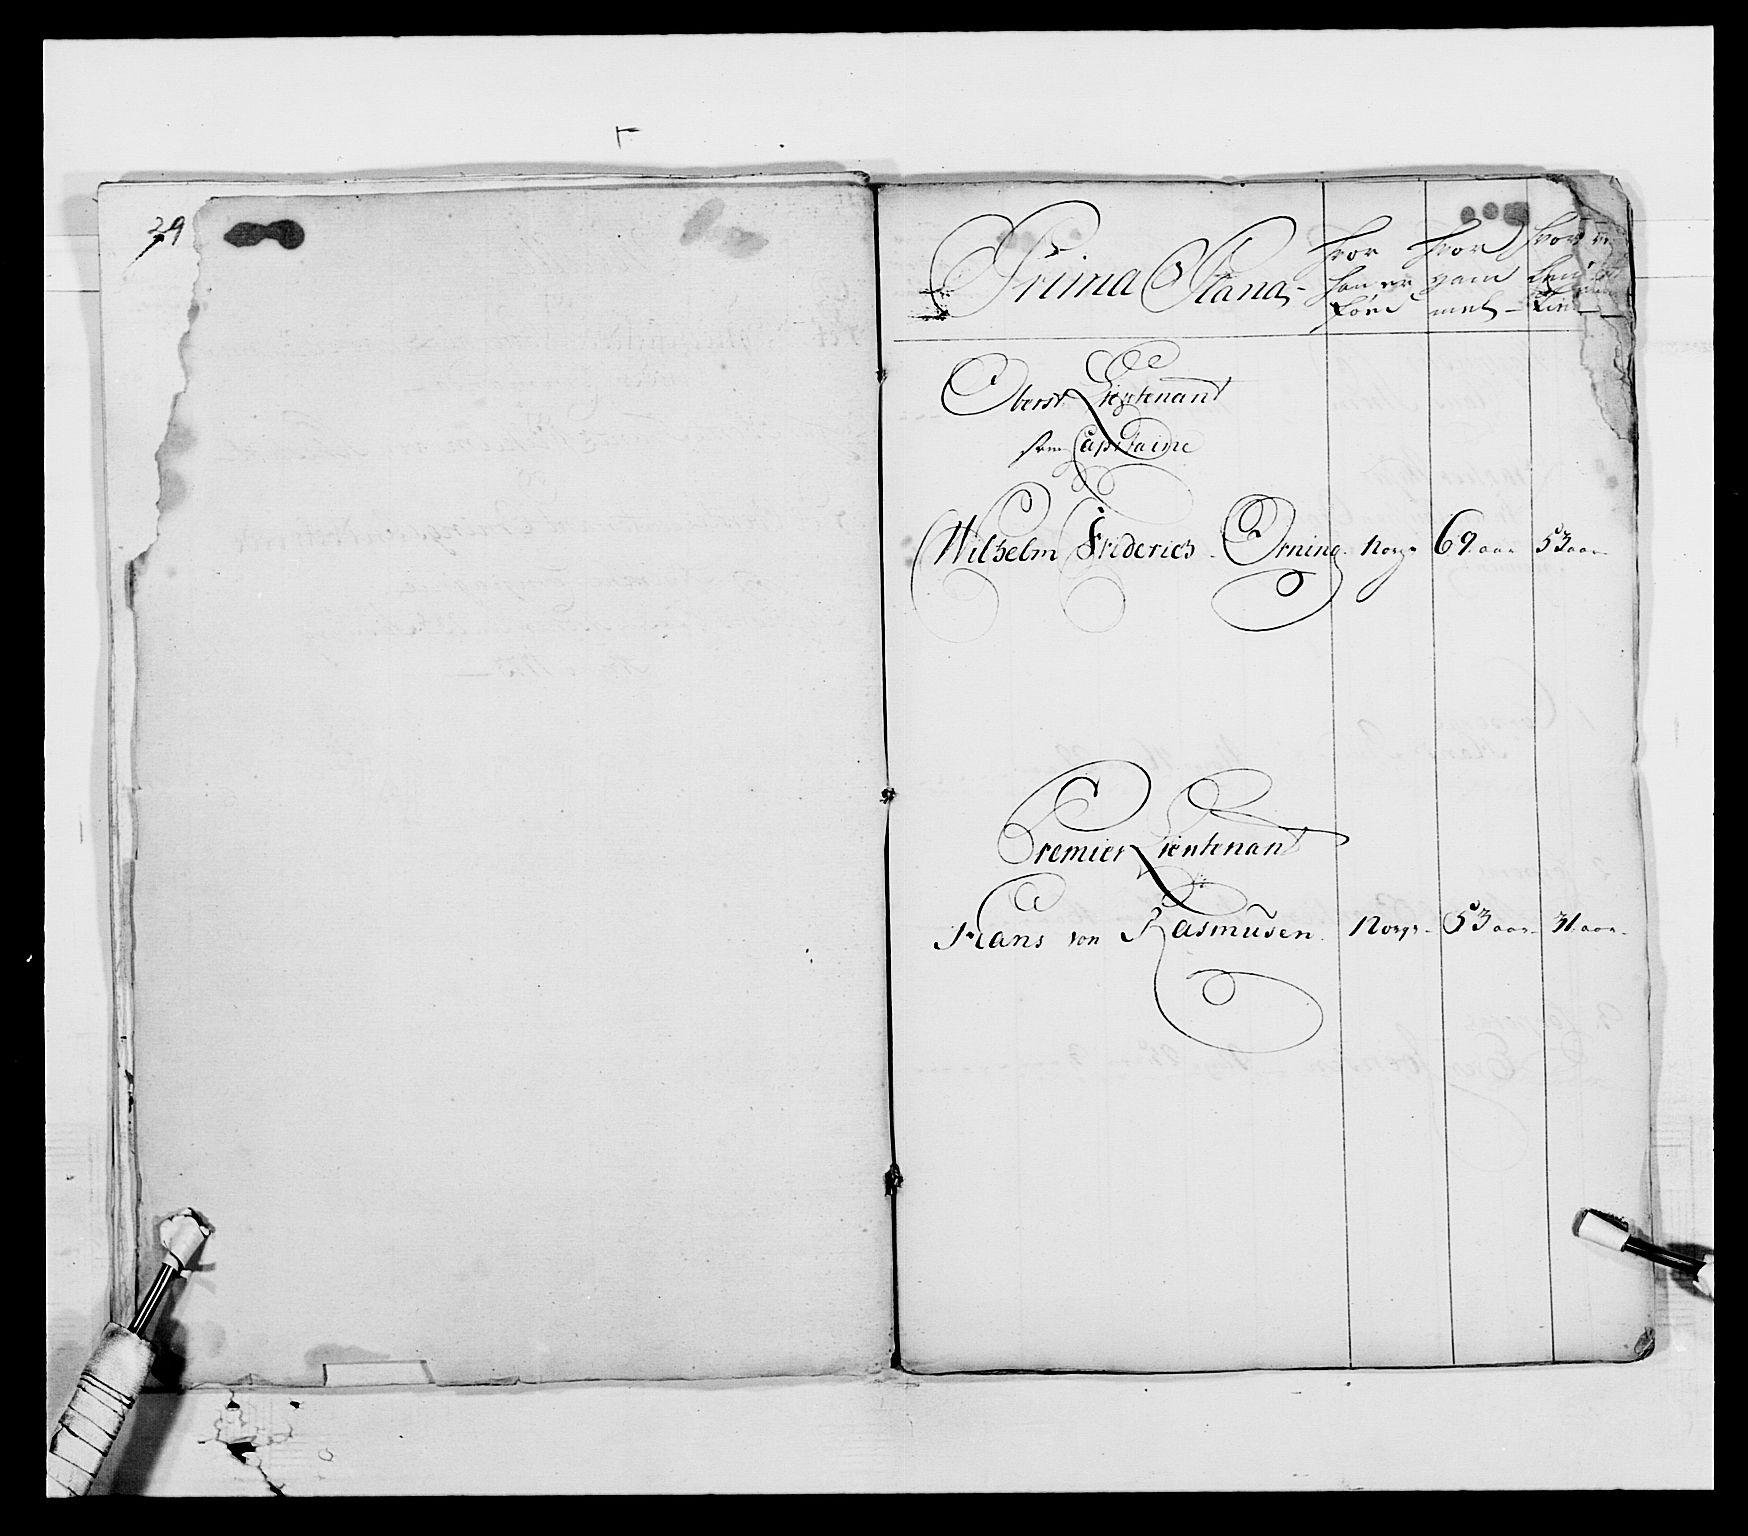 29
Prima Plana
Hvor Hvor Hvor
han er gam
föd mel
Oberst Lieutenant
som Capitaine
Wilhelm Friderich Orning. Norge 69 aar 53 aar
Premier Lieutenant
Frans von Rasmusen. Norge 53 aar 31 aar